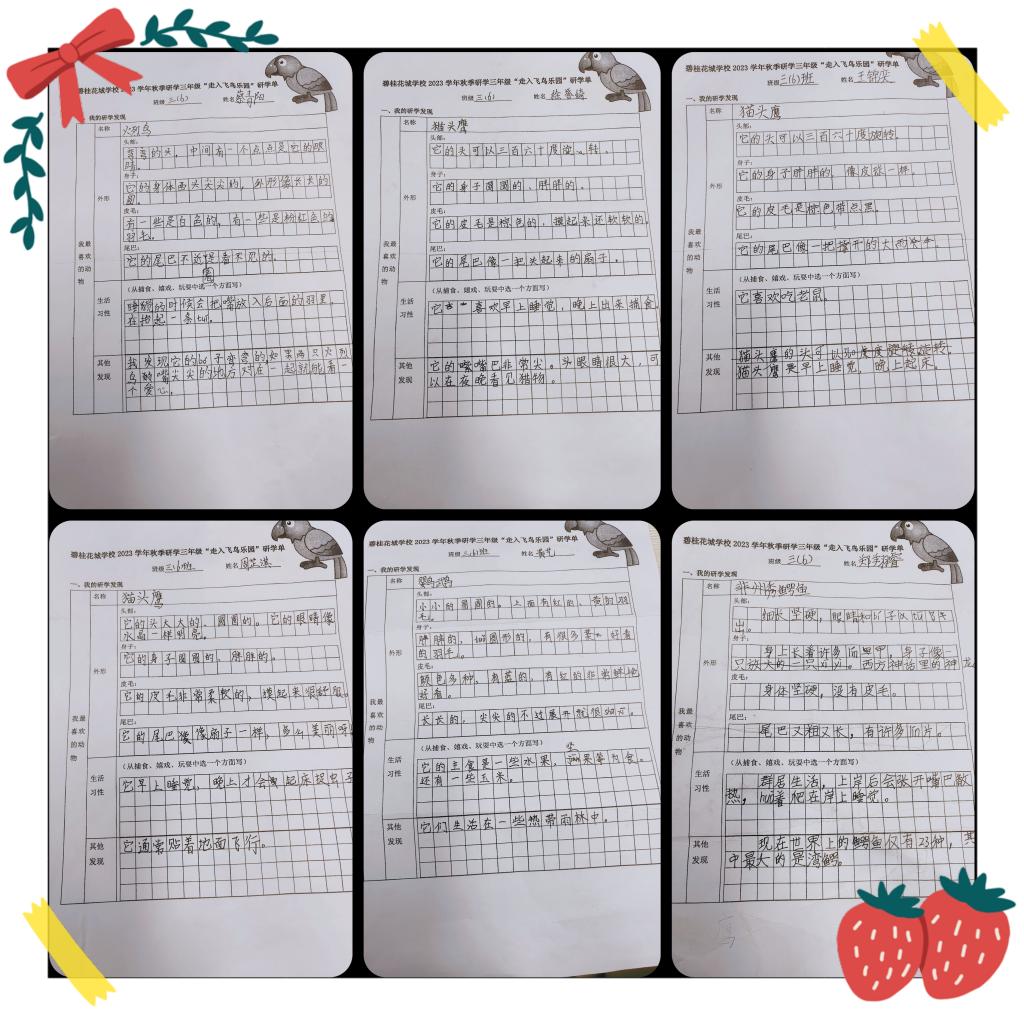 碧桂花城学校 2023 学年秋季研学三年级“走入飞鸟乐园”研学单
班级 三(6) 姓名
一、我的研学发现
我最喜欢的动物
名称 火烈鸟
外形
头部:
弯弯的头,中间有一个点点是它的眼
睛。
身子:
它的身体两头尖尖的,外形像长长的
圆。
皮毛:
有一些是白色的,有一些是粉红色的
羽毛。
尾巴:
它的尾巴不近距看不见的。
离
生活习性
(从捕食、嬉戏、玩耍中选一个方面写)
睡觉的时候会把嘴放入后面的羽里
在抬起一条tui。
其他发现
我发现它的bó子弯弯的如果两只火烈
鸟的嘴尖尖的地方对在一起就能看一
个爱心。
碧桂花城学校 2023 学年秋季研学三年级“走入飞鸟乐园”研学单
班级 三(6) 姓名
一、我的研学发现
我最喜欢的动物
名称 猫头鹰
外形
头部:
它的头可以三百六十度旋转。
身子:
它的身子圆圆的、胖胖的。
皮毛:
它的皮毛是棕色的,摸起来还软软的。
尾巴:
它的尾巴像一把夹起来的扇子。
生活习性
(从捕食、嬉戏、玩耍中选一个方面写)
它喜欢早上睡觉,晚上出来捕食
其他发现
它的嘴巴非常尖。头眼睛很大,可
以在夜晚看见猎物。
碧桂花城学校 2023 学年秋季研学三年级“走入飞鸟乐园”研学单
班级 三(6)班 姓名 王锦奕
一、我的研学发现
我最喜欢的动物
名称 猫头鹰
外形
头部:
它的头可以三百六十度旋转。
身子:
它的身子胖胖的,像皮球一样。
皮毛:
它的皮毛是棕色带点黑。
尾巴:
它的尾巴像一把撑开的大
生活习性
(从捕食、嬉戏、玩耍中选一个方面写)
它喜欢吃老鼠。
其他发现
猫头鹰的头可以360度旋转。
猫头鹰是早上睡觉,晚上起床。
碧桂花城学校 2023 学年秋季研学三年级“走入飞鸟乐园”研学单
班级 三(6)班 姓名
一、我的研学发现
我最喜欢的动物
名称 猫头鹰
外形
头部:
它的头大大的、圆圆的。它的眼睛像
水晶一样明亮。
身子:
它的身子圆圆的、胖胖的。
皮毛:
它的皮毛非常柔软的,摸起来很舒服。
尾巴:
它的尾巴像扇子一样,多么美丽呀
生活习性
(从捕食、嬉戏、玩耍中选一个方面写)
它早上睡觉,晚上才会起床捉虫子
其他发现
它通常贴着地面飞行。
碧桂花城学校 2023 学年秋季研学三年级“走入飞鸟乐园”研学单
班级 三(6)班 姓名
一、我的研学发现
我最喜欢的动物
名称 鹦鹉
外形
头部:
小小的圆圆的。上面有红的、黄的羽
毛。
身子:
胖胖的,圆形的,有很多好看
的羽毛。
皮毛:
颜色多种,有蓝的,有红的非常鲜艳
好看。
尾巴:
长长的,尖尖的不过展开就很
生活习性
(从捕食、嬉戏、玩耍中选一个方面写)
坚
它的主食是一些水果,果等为食。
还有一些玉米。
其他发现
它们生活在一些热带雨林中。
碧桂花城学校 2023 学年秋季研学三年级“走入飞鸟乐园”研学单
班级 三(6) 姓名
一、我的研学发现
我最喜欢的动物
名称 非州鳄鱼
外形
头部:
细长坚硬,眼睛和bí子
出。
身子:
身上长着许多lín甲,身子像一
只放大的一只xī yì。西方神话里的神龙
皮毛:
身体坚硬,没有皮毛。
尾巴:
尾巴又粗又长,有许多lín片。
生活习性
(从捕食、嬉戏、玩耍中选一个方面写)
群居生活,上岸后会张开嘴巴散
热,着爬在岸上睡觉。
其他发现
现在世界上的鳄鱼仅有23种,其
中最大的是湾鳄。